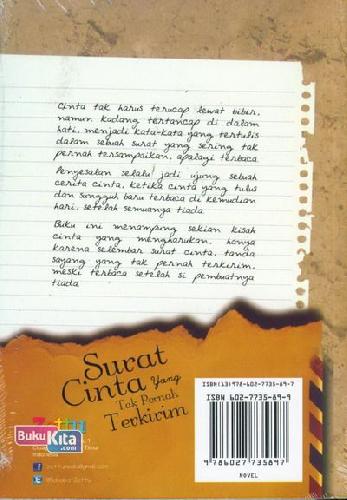 Cinta tak harus terucap lewat bibir,
namun kadang tertancap di dalam
hati, menjadi kata-kata yang tertulis
dalam sebuah surat yang sering tak
pernah tersampaikan, apalagi terbaca.
Penyesalan selalu jadi ujung sebuah
cerita cinta, ketika cinta yang tulus
dan sungguh baru terbaca di kemudian
hari, setelah semuanya tiada.
Buku ini menampung sekian kisah
cinta yang mengharukan, hanya
karena selembar surat cinta, tanda
sayang yang tak pernah terkirim,
meski terbaca setelah si pembuatnya
tiada
Surat
Cinta Yang
Tak Pernah
Terkirim
ISBN(13)978-602-7735-69-7
ISBN 602-7735-69-9
9 786027 735897
NOVEL
Buku
Kita
.com
Indonesia